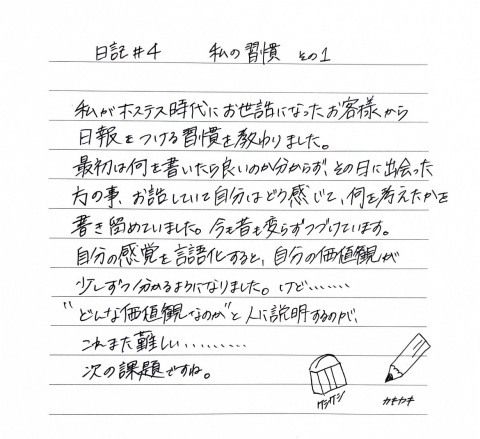 日記#4 私の習慣 その1
私がホステス時代にお世話になったお客様から
日報をつける習慣を教わりました。
最初は何を書いたら良いのか分からず、その日に出会った
方の事、お話していて自分はどう感じて、何を考えたかを
書き留めていました。今も昔も変らずつづけています。
自分の感覚を言語化すると、自分の価値観が
少しずつ分かるようになりました。けど………
"どんな価値観なのか"と人に説明するのが、
これまた難しい………
次の課題ですね。
ケシケシ カキカキ